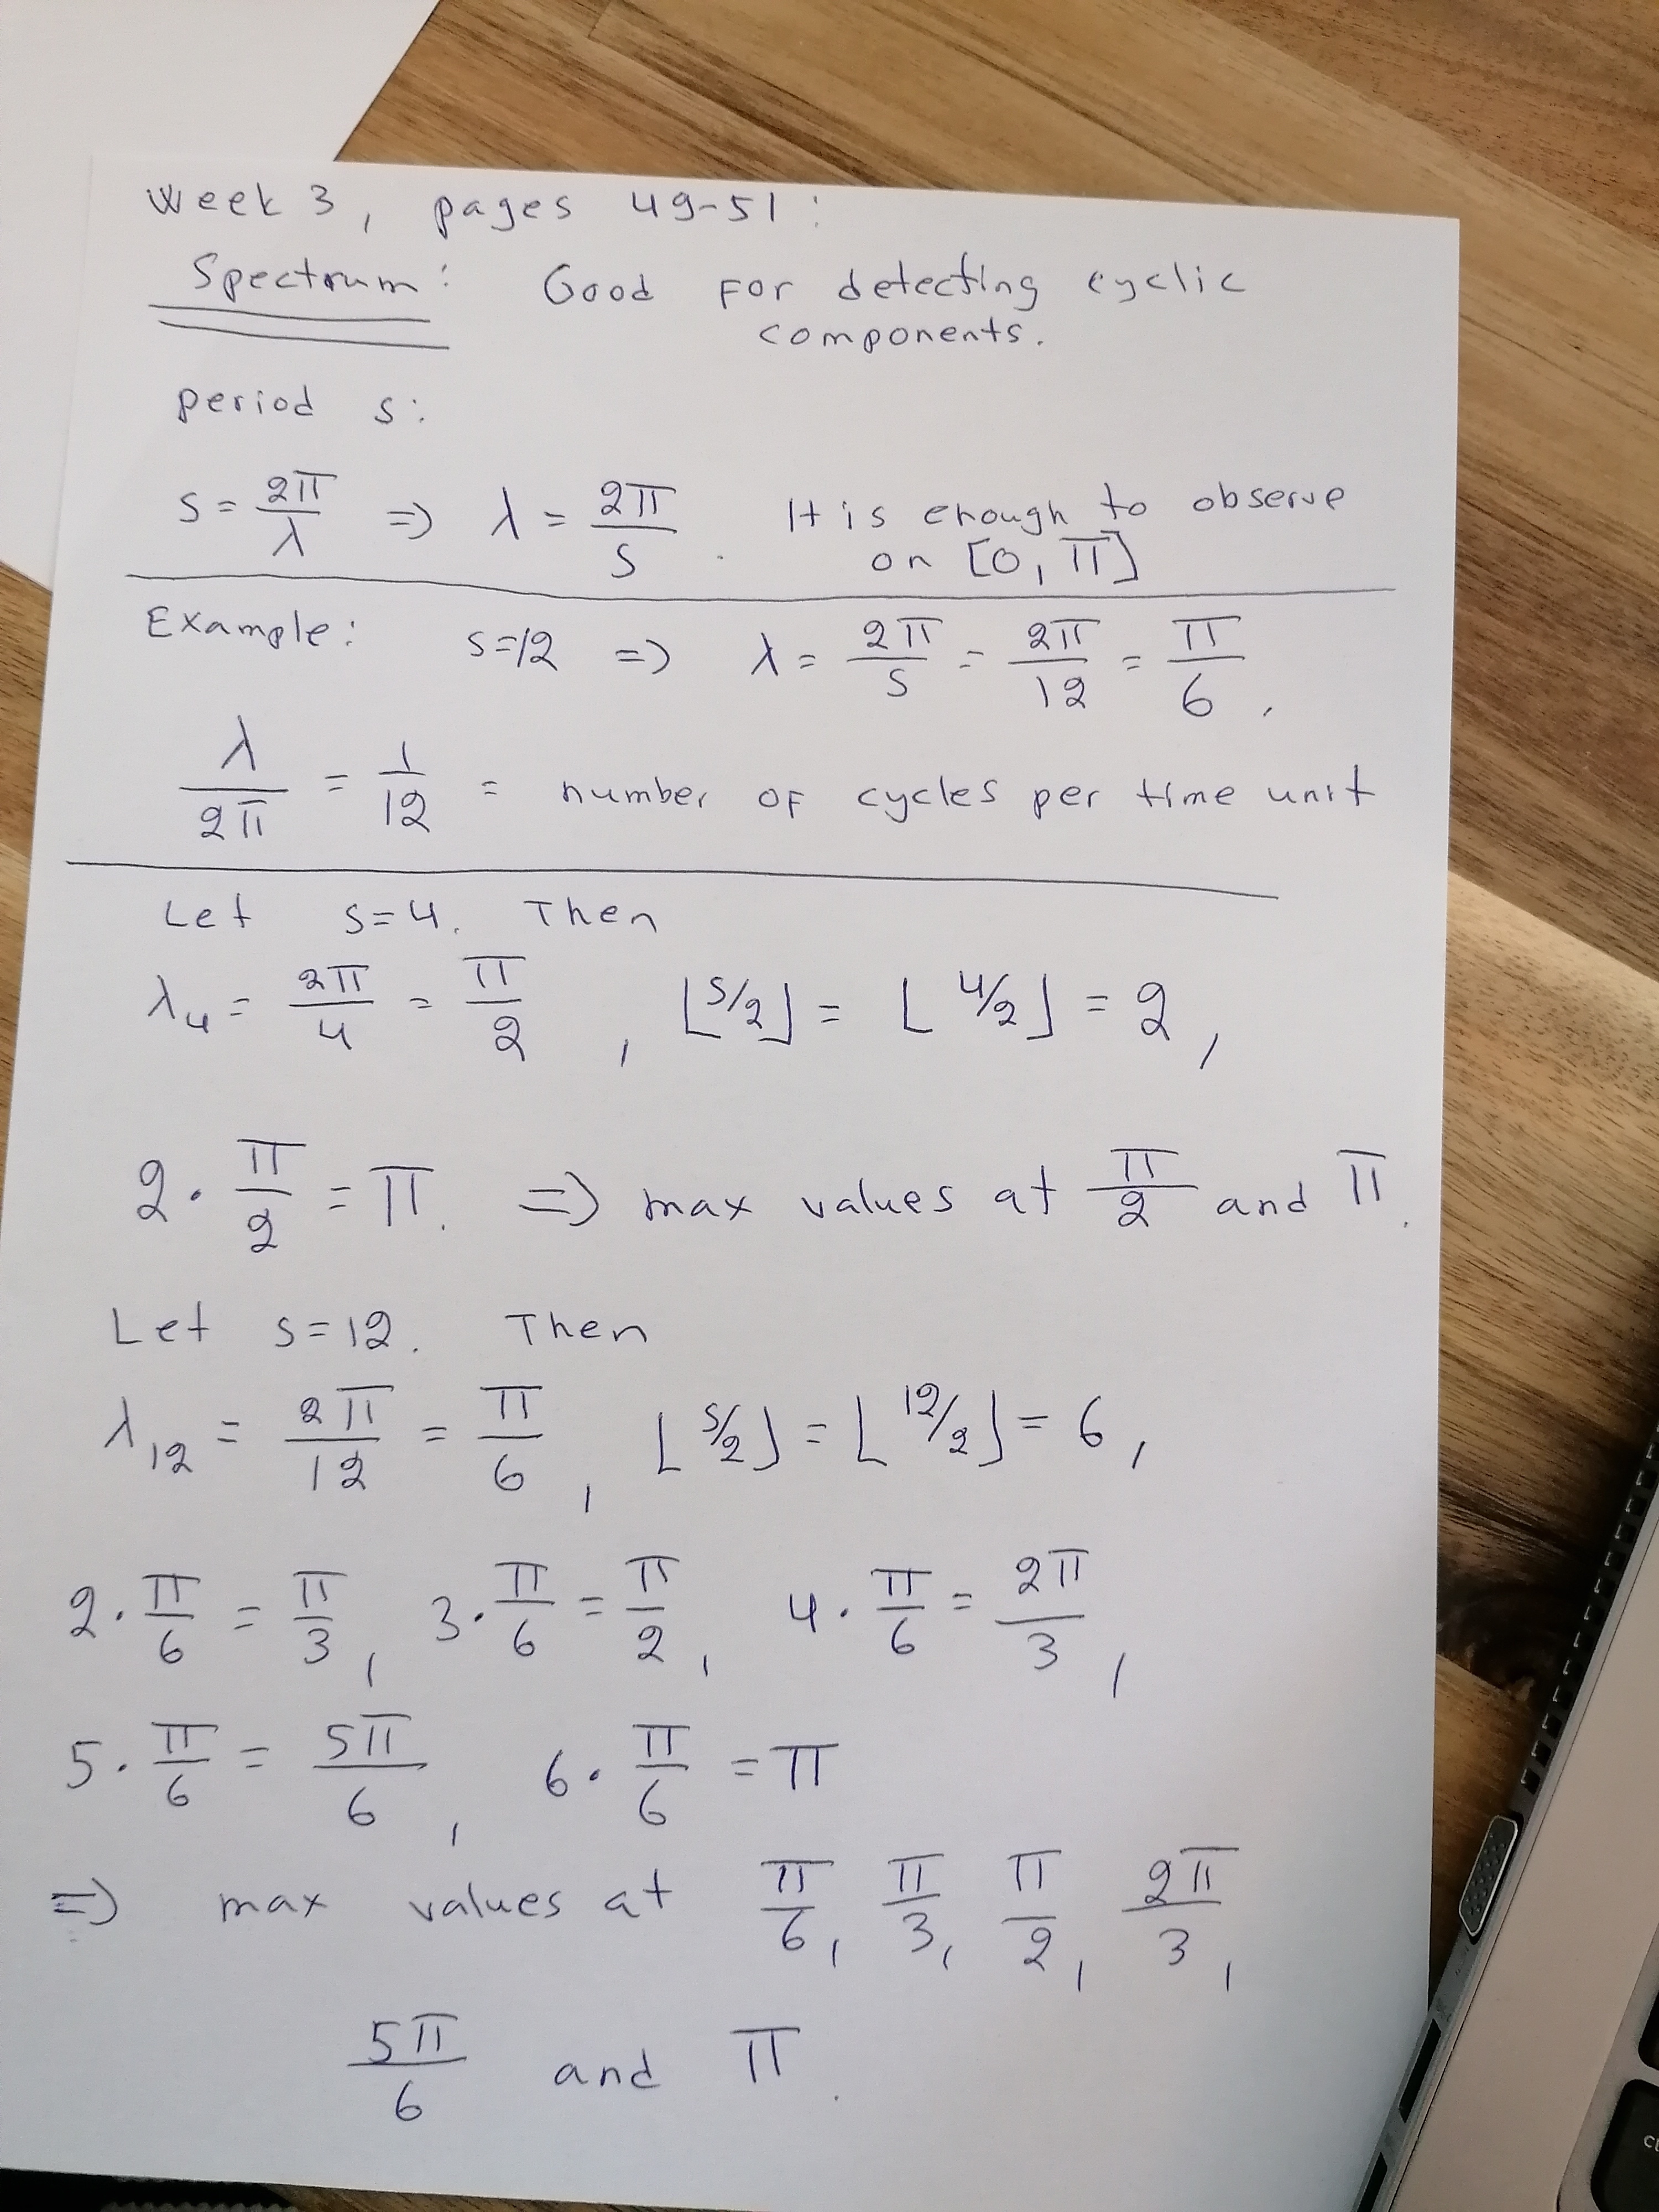 Week 3, pages 49-51:
Spectrum: Good for detecting cyclic
components.
period s:
s = 2π/λ => λ = 2π/s. It is enough to observe
on [0, π]
Example: s=12 => λ = 2π/s = 2π/12 = π/6,
λ/2π = 1/12 = number of cycles per time unit
Let s=4. Then
λ₄ = 2π/4 = π/2, ⌊s/2⌋ = ⌊4/2⌋ = 2,
2 · π/2 = π. => max values at π/2 and π.
Let s=12. Then
λ₁₂ = 2π/12 = π/6, ⌊s/2⌋ = ⌊12/2⌋ = 6,
2 · π/6 = π/3, 3 · π/6 = π/2, 4 · π/6 = 2π/3,
5 · π/6 = 5π/6, 6 · π/6 = π
=> max values at π/6, π/3, π/2, 2π/3,
5π/6 and π.